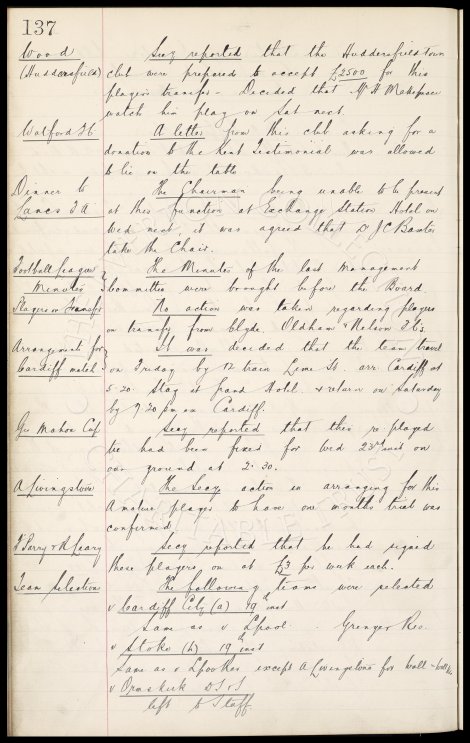 137
Wood Secy reported that the Huddersfield town
(Huddersfield) club were prepared to accept £2500 for this
players transfer - Decided that Mr H Makepeace
watch him play on Sat next.
Watford FC A letter from this club asking for a
donation to the Kent Testimonial was allowed
to lie on the table
Dinner to The Chairman being unable to be present
Lancs F A at this function at Exchange Station Hotel on
Wed next, it was agreed that Dr J C Baxter
take the Chair.
Football League The Minutes of the last Management
Minutes Committee were brought before the Board
Players on Transfer No action was taken regarding players
on transfer from Clyde, Oldham & Nelson F.C's.
Arrangement for It was decided that the team travel
Cardiff match on Friday by 12 train Lime St. arr. Cardiff at
5.20 Stay at Grand Hotel & return on Saturday
by 7.30 pm ex Cardiff.
Geo Mahon Cup Secy reported that this re played
tie had been fixed for Wed 23rd inst on
our ground at 2.30.
A Livingstone The Secy action in arranging for this
Amateur player to have one months trial was
confirmed
Parry & A Leary Secy reported that he had signed
these players on at £3 per week each.
Team Selection The following teams were selected
v Cardiff City (a) 19th inst
Same as v Lpool. - Grenyer Res.
v Stoke (h) 19th inst
Same as v Lpool Res except A Livingstone for
v Ormskirk D S S
left to Staff